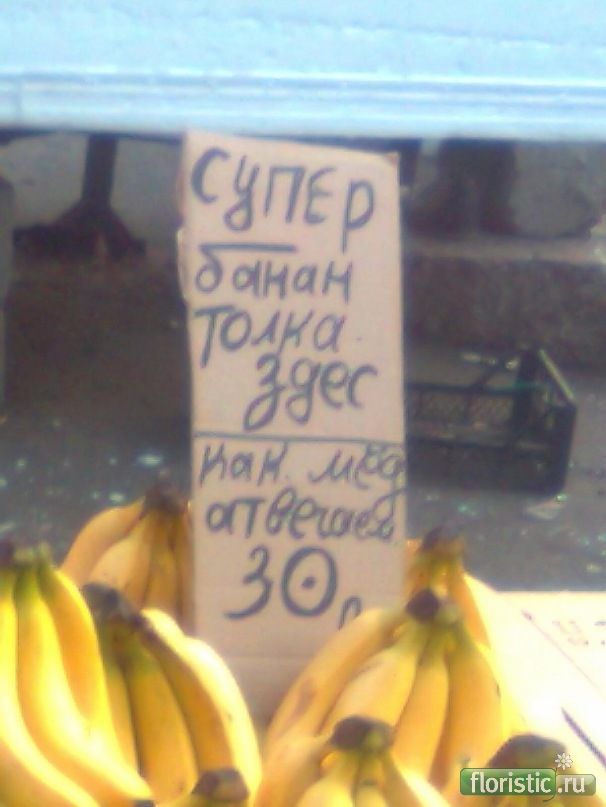 супер
банан
толка
здес
как. мёд
атвечаем
30р
floristic.ru